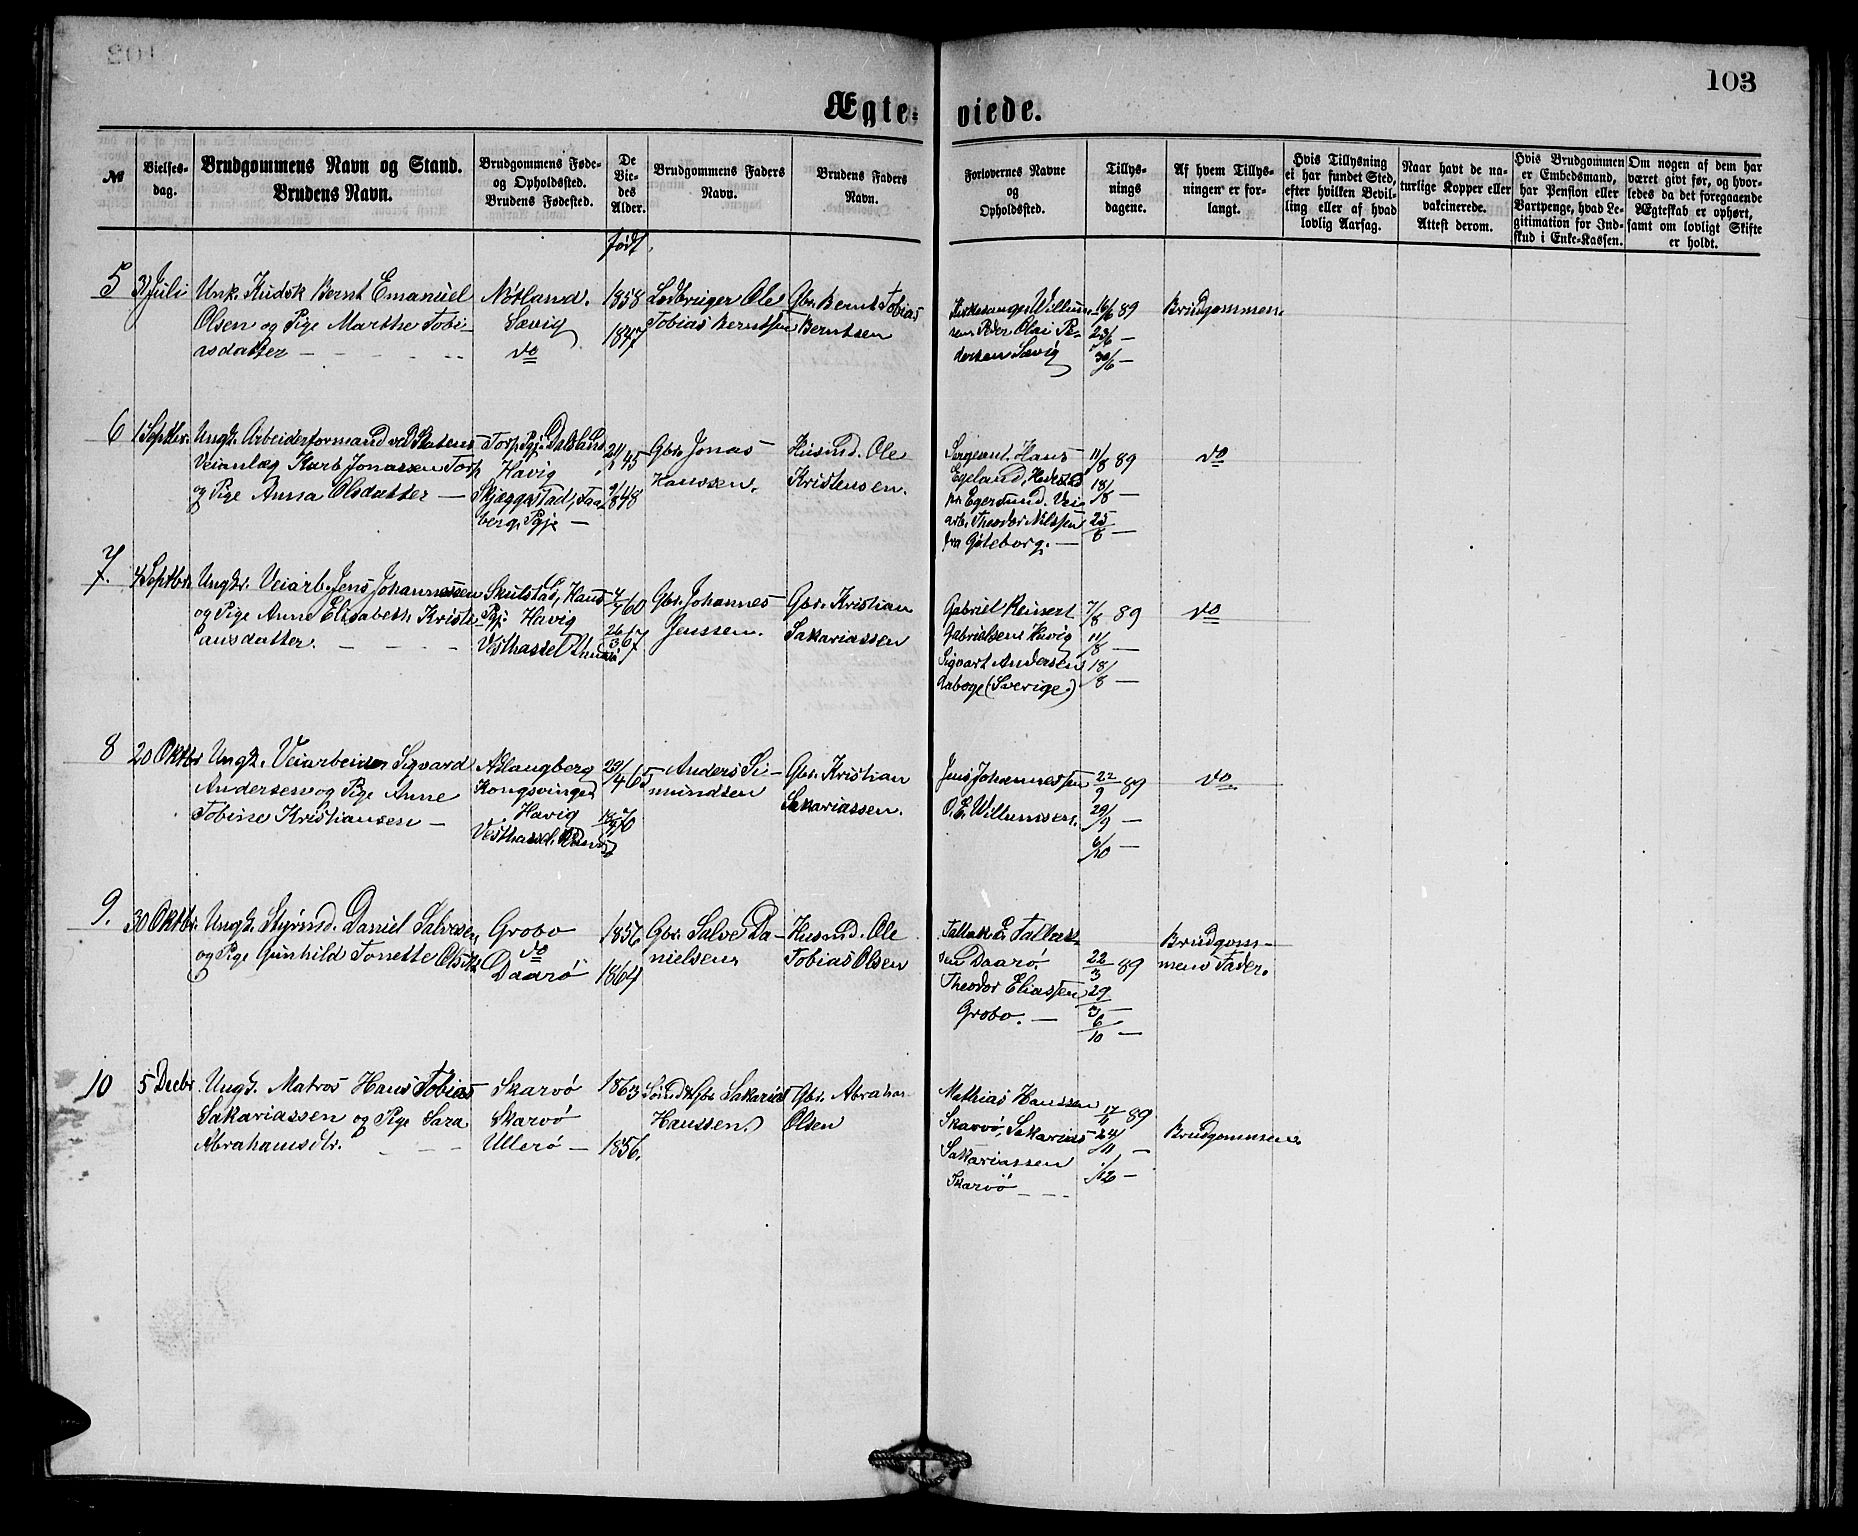 103
Ægte- viede.
№
Vielses-
dag.
Brudgommens Navn og Stand.
Brudens Navn.
Brudgommens Føde-
og Opholdssted.
Brudens Fødested.
De
Vie-
des
Alder.
Brudgommens Faders
Navn.
Brudens Faders
Navn.
Forlovernes Navne
og
Opholdssted.
Tillys-
nings
dagene.
Af hvem Tillys-
ningen er for-
langt.
Hvis Tillysning
ei har fundet Sted,
efter hvilken Bevil-
ling eller af hvad
lovlig Aarsag.
Naar havt de na-
turlige Kopper eller
vakcinerede.
Attest derom.
Hvis Brudgommen
er Embedsmand,
har Pension eller
Vartpenge, hvad Le-
gitimation for Ind-
skud i Enke-Kassen.
Om nogen af dem har
været givt før, og hvor-
ledes da det foregaaende
Ægteskab er ophørt,
samt om lovligt Skifte
er holdt.
født.
5
3 Juli
Unk. Kudsk Bernt Emanuel
Olsen og Pige Marthe Tobi-
asdatter
Nötland.
Sævig
do
1858
1847
Ole
Tobias Berntsen
Gbr. Bernt Tobias
Berntsen
Willum-
sen Peder Olai Pe-
dersen Sævig
16/6 89
23/6 —
30/6 —
Brudgommen
6
1 Septbr.
Ungk. Arbeidsformand ved Statens
Veianlæg Karl Jonassen Torp
og Pige Anna Olsdatter —
Torp, Pgj. Dalsland
Havig
Skjæggestad, Faa-
berg, Pgje —
45
48
Gbr. Jonas
Hanssen.
Husmd. Ole
Kristensen.
Sergeant Hans
Egeland,
pr. Egersund. Vei-
arb. Theodor Nilssen
fra Göteborg. —
11/8 89
18/8 —
25/8 —
do
7.
4 Septbr.
Ungk. Veiarb. Jens Johannessen
og Pige Anne Elisabeth Kristi-
ansdatter.
Haus
Pgj. Havig
Vesthassel
4/7 60
26/3 67
Gbr. Johannes
Jenssen.
Gbr. Kristian
Sakariassen
Gabriel Reinert
Gabrielsen Havig
Sigvart Andersen
(Sverige)
7/8 89
11/8 —
18/8 —
do
8
20 Oktbr
Ungk. Veiarbeider Sigvard
Andersen og Pige Anne
Tobine Kristiansen —
Kongsvinger
Havig
Vesthassel
65
70
Anders Si-
mundsen
Gbr. Kristian
Sakariassen.
Jens Johannessen
O. E. Willumsen.
22/9 89
29/9 —
6/10 —
do
9.
30 Oktbr.
Ungk. Styrmd. Daniel Salvesen,
og Pige Gunhild Tonette
Grobo
do
Daarö
1856
1864
Gbr. Salve Da-
nielsen,
Husmd. Ole
Tobias Olsen
Tallak
Daarö.
Theodor Eliassen
Grobo. —
22/3 89
29/3 —
6/10 —
Brudgom-
mens Fader.
10
5 Decbr.
Ungk. Matros Hans Tobias
Sakariassen og Pige Sara
Abrahamsdtr.
Skarvö
Skarvö
Ullerö —
1863
1856.
Sakarias
Hanssen.
Gbr. Abraham
Olsen
Mathias Hanssen
Skarvö, Sakarias
Sakariassen
Skarvö
17/11 89
24/11 —
1/12 —
Brudgommen